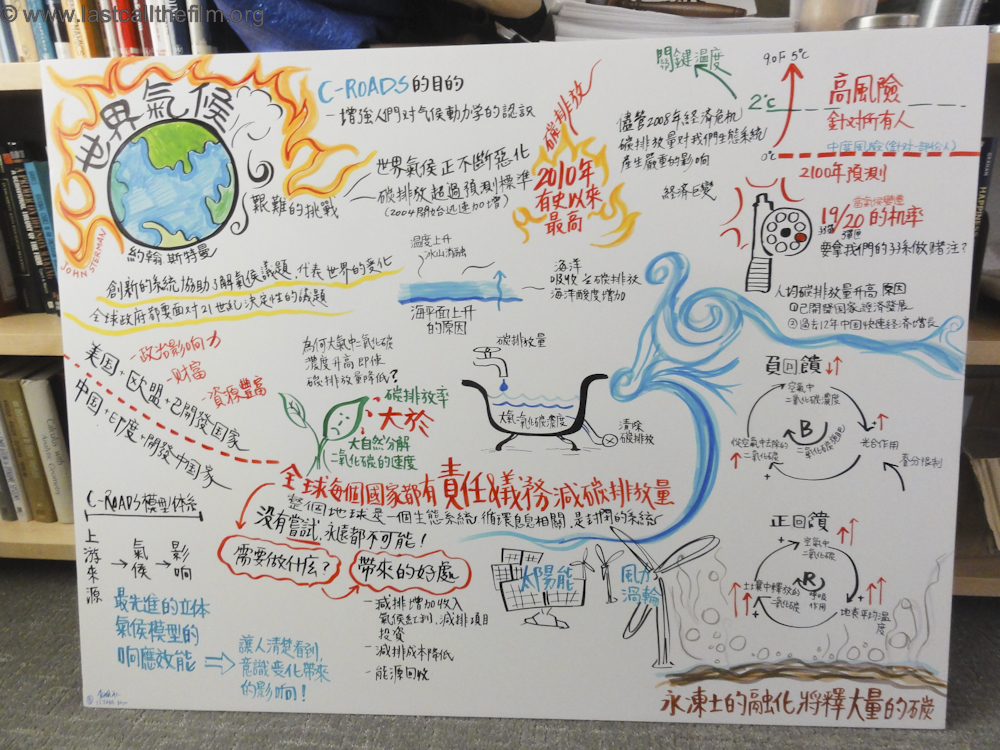 © www.lastcallthefilm.org
世界氣候
約翰斯特曼
JOHN STERMAN
C-ROADS的目的
-增強人們对气候動力學的認識
艱難的挑戰
世界氣候正不斷惡化
碳排放超過預測標準
(2004開始迅速加增)
碳排放
2010年
有史以來
最高
儘管2008年経濟危机
碳排放量对我們生態系統
產生嚴重的影响
経濟巨變
關鍵温度
9°F 5°C
2°C
0°C
高風險
針对所有人
2100年預測
19/20的机率
要拿我們的子系做賭注?
創新的系統協助了解氣候議題,代表世界的変化
全球政府都要面对21世紀決定性的議題
温度上升
冰山消融
海平面上升
的原因
海洋
吸收 各碳排放
海洋酸度增加
人均碳排放量升高原因
①已開發国家経濟發展
②過去12年中国快速経濟增長
美国+欧盟+已開發國家
中国+印度+開發中國家
-政治影响力
-财富
-資源豐富
為何大氣中二氧化碳
濃度升高即使
碳排放量降低?
碳排放率
大於
大自然分解
二氧化碳的速度
碳排放量
大氣二氧化碳濃度
清除
碳排放
負回饋
空氣中
二氧化碳濃度
B
從空氣中去除的
二氧化碳
光合作用
養分限制
+
-
全球每個國家都有責任&義務減碳排放量
整個地球是一個生態系統 循環息息相關,是封閉的系統
沒有嘗試,永遠都不可能!
需要做什么?
帶來的好處
-減排增加收入
氣候紅利,減排項目
投資
-減排成本降低
-能源回收
太陽能
風力
渦輪
C-ROADS模型体系
上游來源
→氣候
→影响
最先進的立体
氣候模型的
响應效能
讓人清楚看到,
意識变化帶來
的影响!
正回饋
空氣中
二氧化碳
R
土壤中釋放的
二氧化碳
呼吸
作用
地表平均温度
+
+
+
永凍土的融化將釋大量的碳